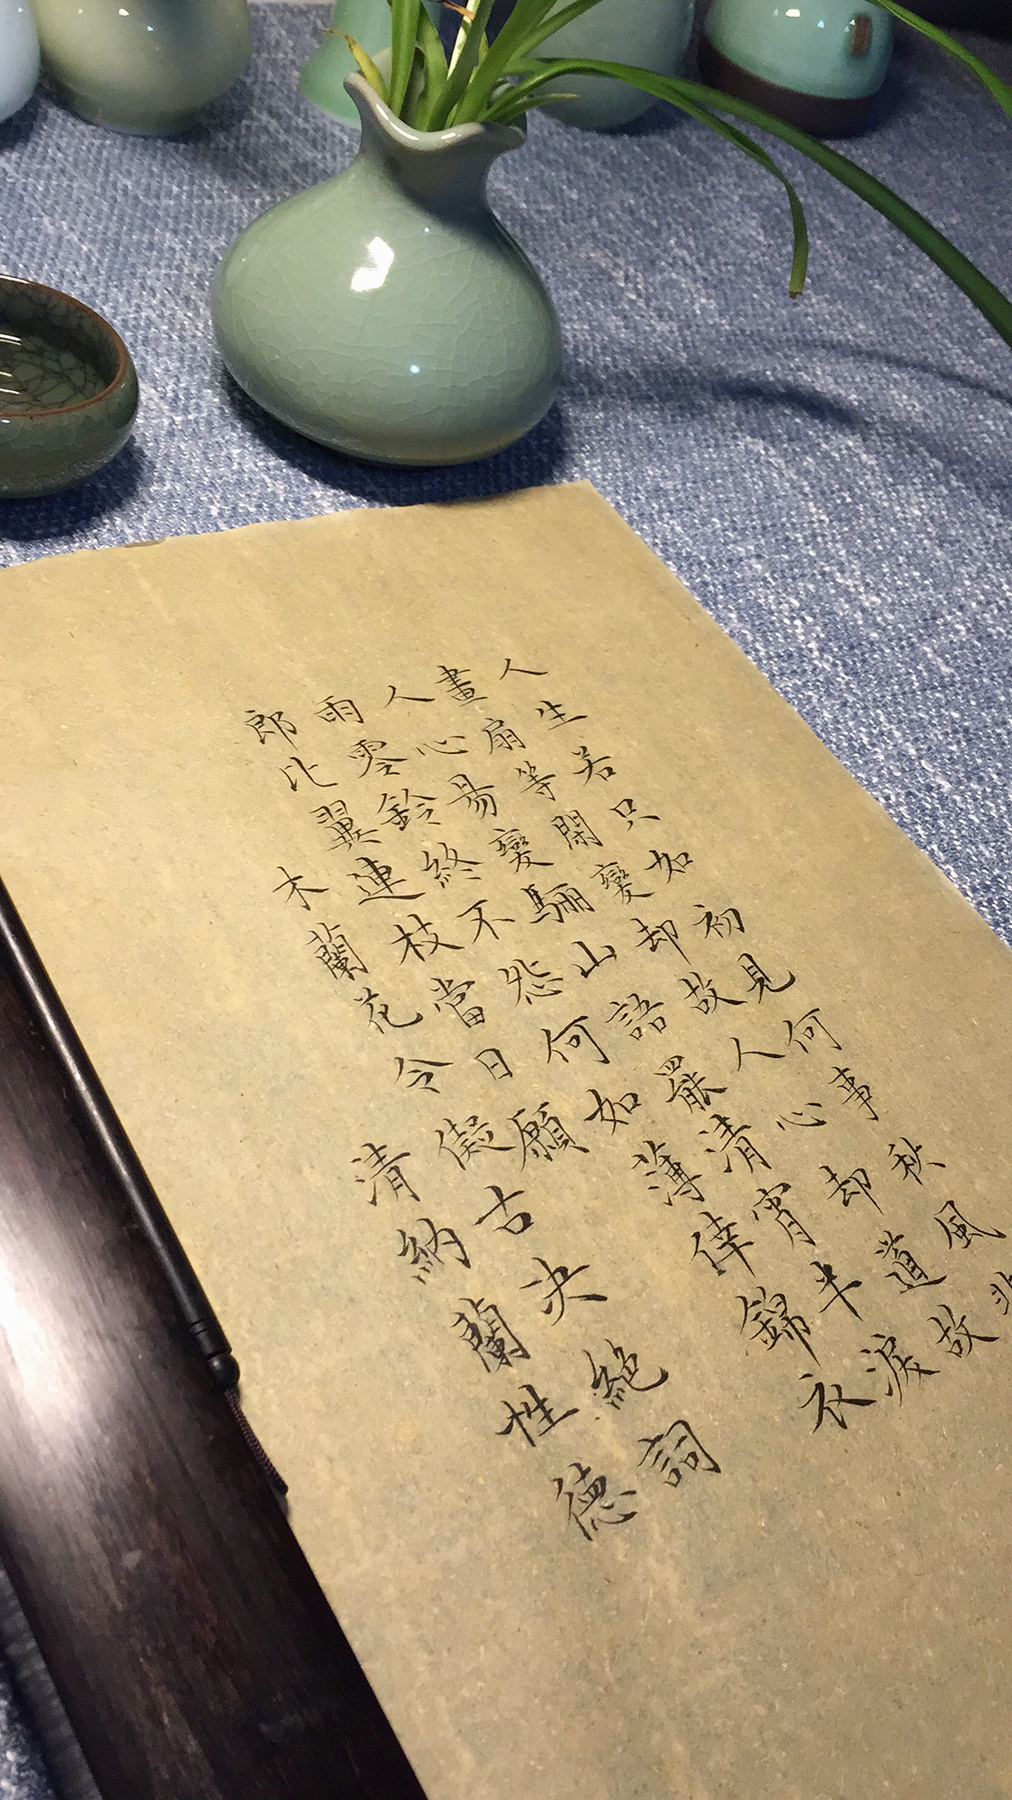 人生若只如初見何事秋風
畫扇等閑變却故人心却道故
人心易變驪山語罷清宵半淚
雨零鈴終不怨何如薄倖錦衣
郎比翼連枝當日願
木蘭花令 儗古決絕詞
清納蘭性德